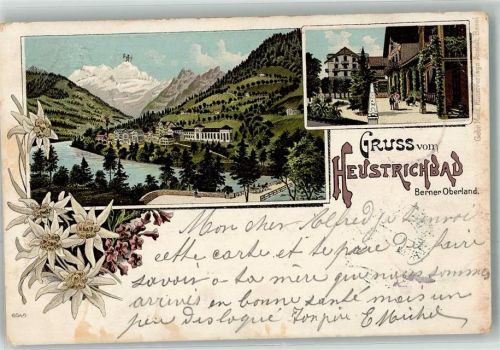 GRUSS vom
HEUSTRICHBAD
Berner Oberland.
Mon cher Alfred je t'envoi
cette carte et te prie de faire
savoir a ta mère que nous sommes
arrivés en bonne santé mais un
peu disloqué Ton père E Michel